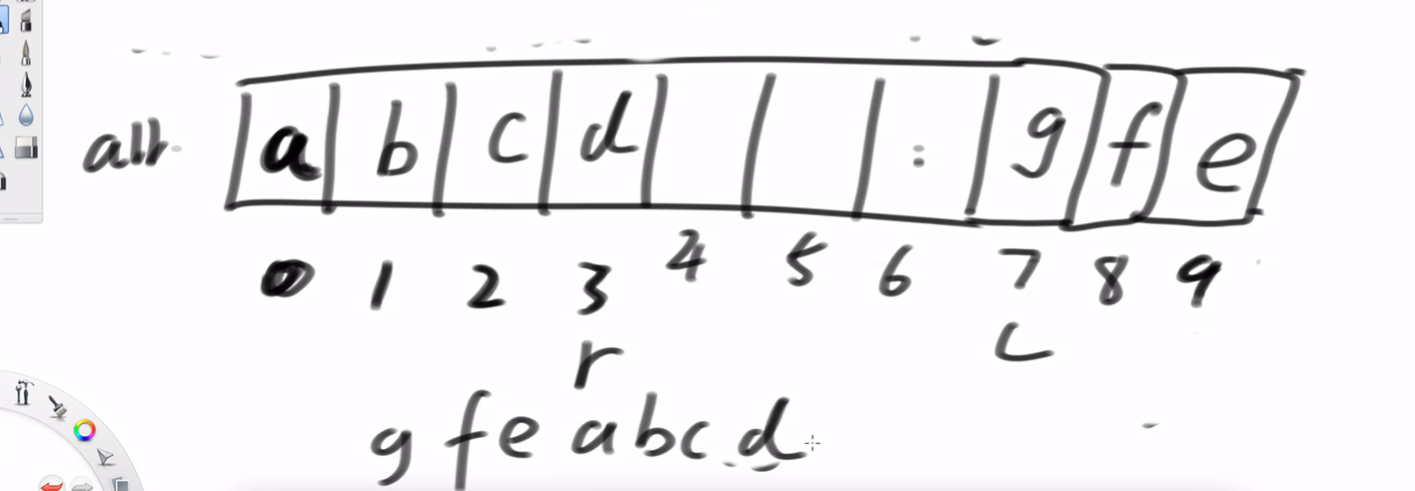 arr a b c d : g f e
0 1 2 3 4 5 6 7 8 9
r L
g f e a b c d